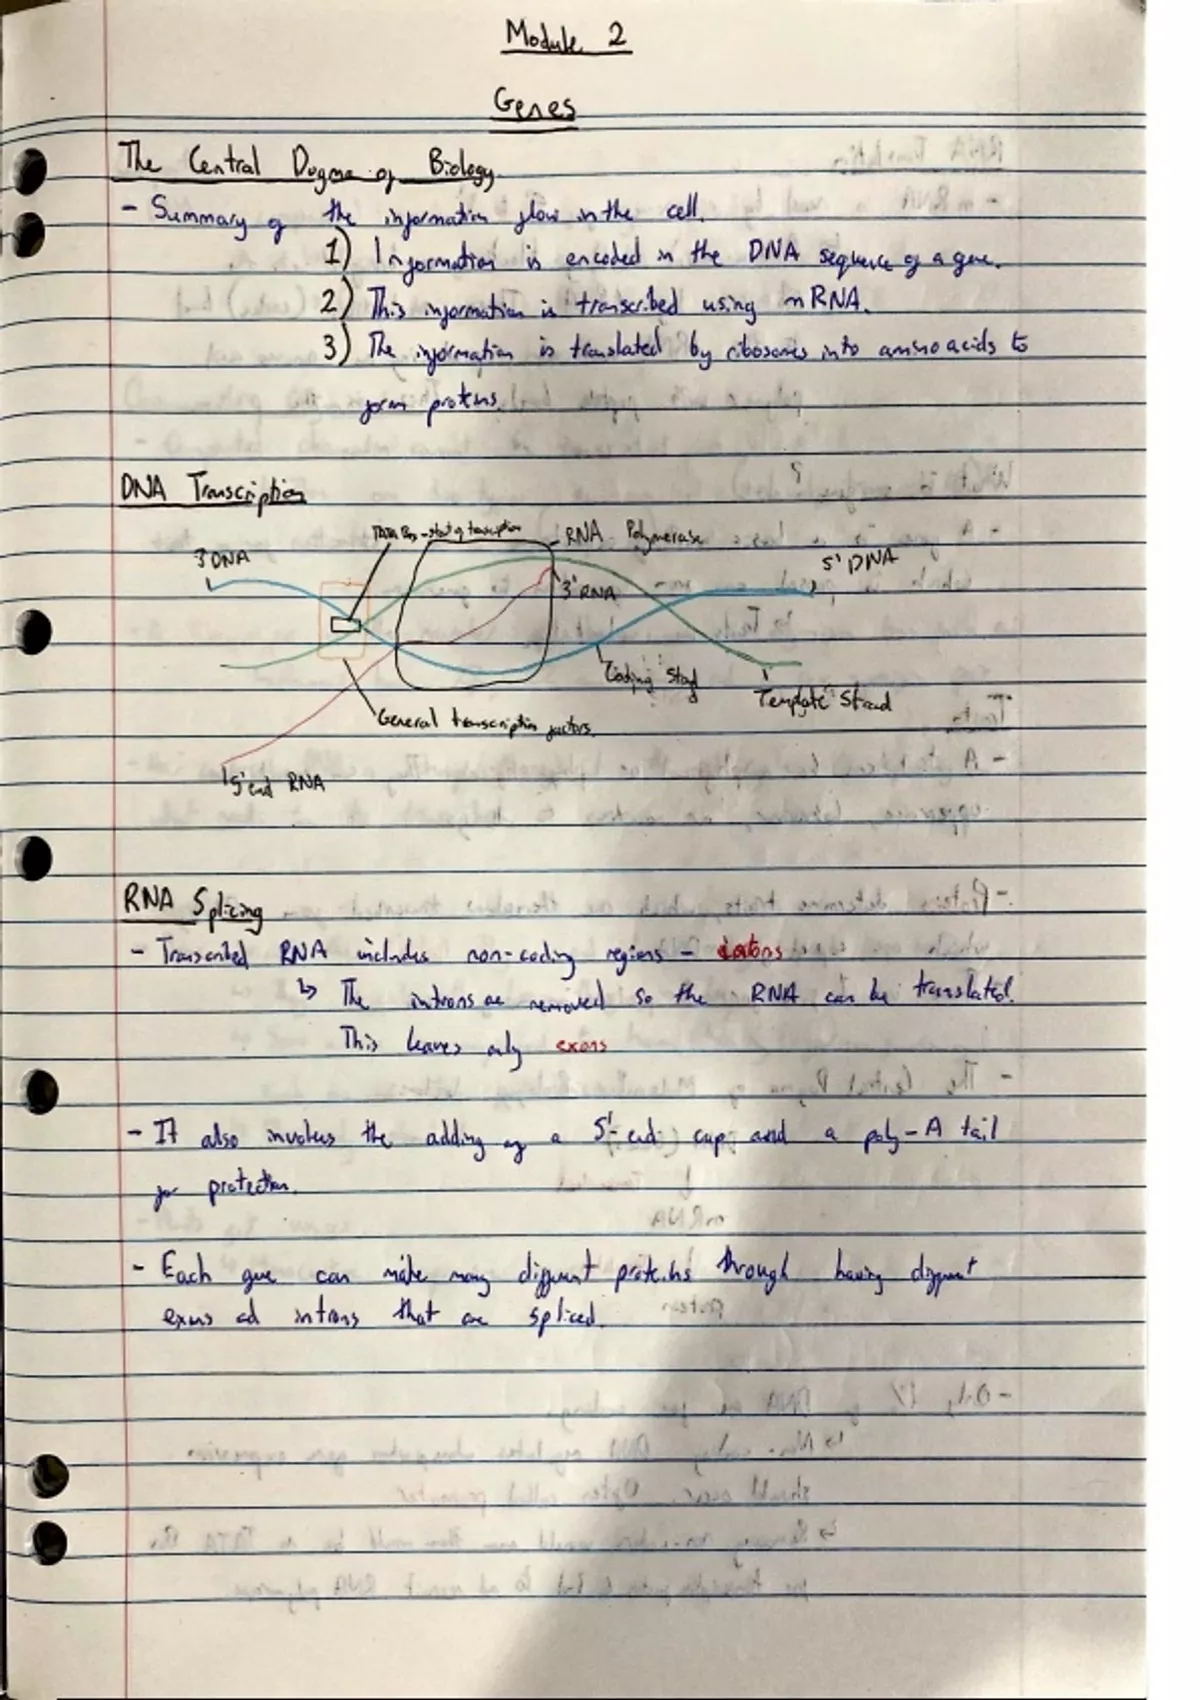 Module 2
Genes
The Central Dogma of Biology
- Summary of the information flow in the cell.
1) Information is encoded in the DNA sequence of a gene.
2) This information is transcribed using mRNA.
3) The information is translated by ribosomes into amino acids to
form proteins.
DNA Transcription
TATA Box - start of transcription
RNA Polymerase
3' DNA
5' DNA
3' RNA
Coding Strand
Template Strand
General transcription factors.
5' end RNA
RNA Splicing
- Transcribed RNA includes non-coding regions - introns
↳ The introns are removed so the RNA can be translated.
This leaves only exons
- It also involves the adding of a 5'-end cap and a poly-A tail
for protection.
- Each gene can make many different proteins through having different
exons and introns that are spliced.